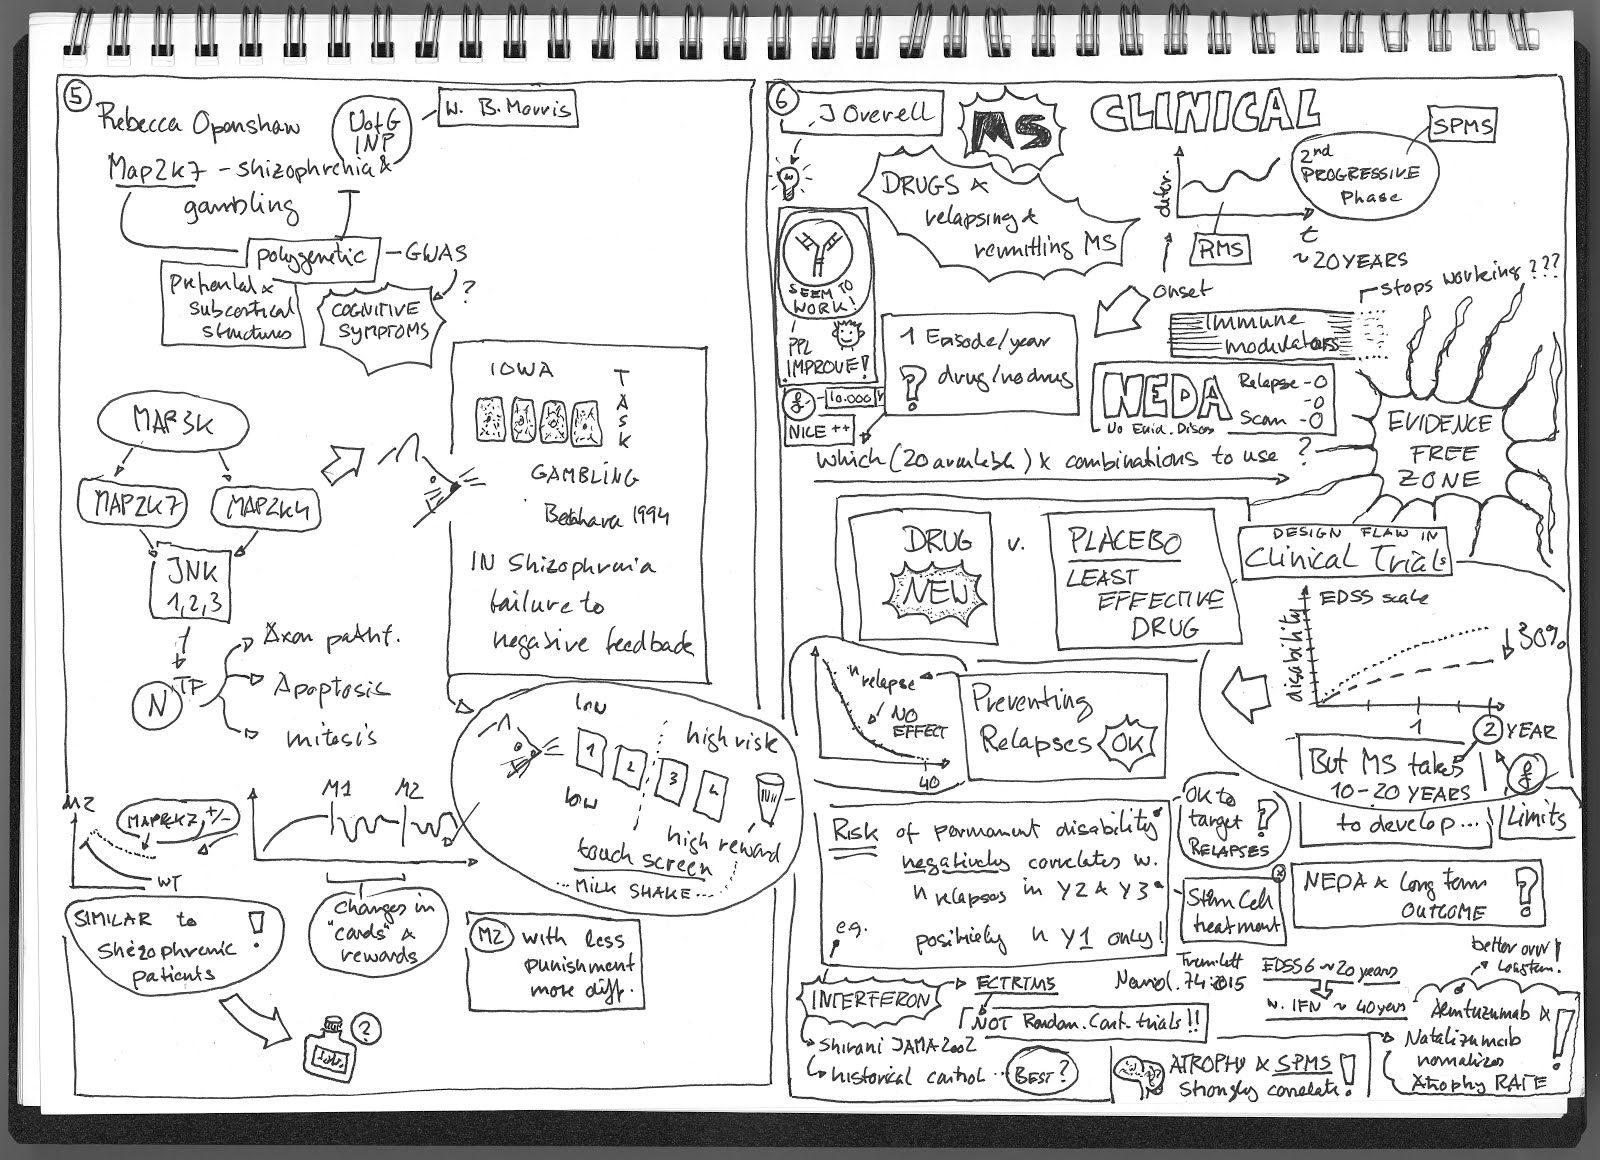 5
Rebecca Openshaw
UofG
INP
W. B. Morris
Map2k7 - shizophrenia &
gambling
polygenetic
GWAS
?
subcortical
structures
COGNITIVE
SYMPTOMS
MAP3K
MAP2K7
MAP2K4
JNK
1,2,3
TF
N
Axon
Apoptosis
mitosis
IOWA
TASK
GAMBLING
1994
IN Shizophrenia
failure to
negative feedback
low
high risk
1
2
3
4
low
high reward
touch screen
... MILK SHAKE ...
M2
+/-
WT
M1
M2
SIMILAR to
shizophrenic
patients
!
changes in
"cards" &
rewards
M2 with less
punishment
more diff.
?
6
J Overell
MS
CLINICAL
DRUGS &
relapsing &
remitting MS
SPMS
2nd
PROGRESSIVE
Phase
RMS
t
~20 YEARS
onset
SEEM TO
WORK!
PPL
IMPROVE!
£
10.000/Y
NICE ++
1 Episode/year
? drug/no drug
stops working???
Immune
modulators
NEDA
Relapse - 0
- 0
Scan - 0
EVIDENCE
FREE
ZONE
which (20 available) & combinations to use ?
DRUG
NEW
v.
PLACEBO
LEAST
EFFECTIVE
DRUG
DESIGN FLAW IN
Clinical Trials
EDSS scale
disability
30%
1
2 YEAR
But MS takes
10-20 YEARS
to develop...
£
Limits
n relapse
NO
EFFECT
40
Preventing
Relapses OK
Risk of permament disability
negatively correlates w.
n relapses in Y2 & Y3
e.g.
positively n Y1 only!
OK to
target
RELAPSES
?
Stem Cell
treatment
NEDA & long term
OUTCOME ?
INTERFERON
ECTRIMS
NOT Random. Cont. trials!!
Shirani JAMA 2002
historical control ... BEST?
74: 2015
EDSS6 ~20 years
w. IFN ~ 40 years
better over
longterm.
!
Alemtuzumab &
Natalizumab
normalizes
Atrophy RATE
!
ATROPHY & SPMS
strongly correlate!